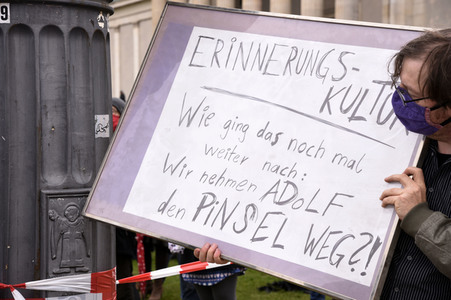 9
ERINNERUNGS-
KULTUR
Wie ging das noch mal
weiter nach:
Wir nehmen ADOLF
den PiNSEL WEG?!